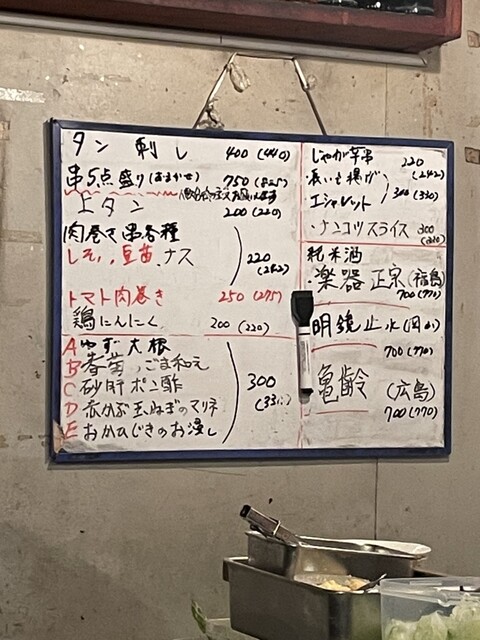 タン刺し 400 (440)
串5点盛り(おまかせ) 750 (825)
上タン 200 (220)
肉巻き串各種
しそ、豆苗、ナス 220 (242)
トマト肉巻き 250 (275)
鶏にんにく 200 (220)
A ゆず大根
B 春菊、ごま和え
C 砂肝ポン酢 300 (330)
D 赤かぶ玉ねぎのマリネ
E おかひじきのお浸し
じゃが芋串 220 (242)
長いも揚げ
エシャレット 300 (330)
・ナンコツスライス 300 (330)
純米酒
・楽器正宗(福島) 700 (770)
明鏡止水 700 (770)
亀齢 (広島) 700 (770)